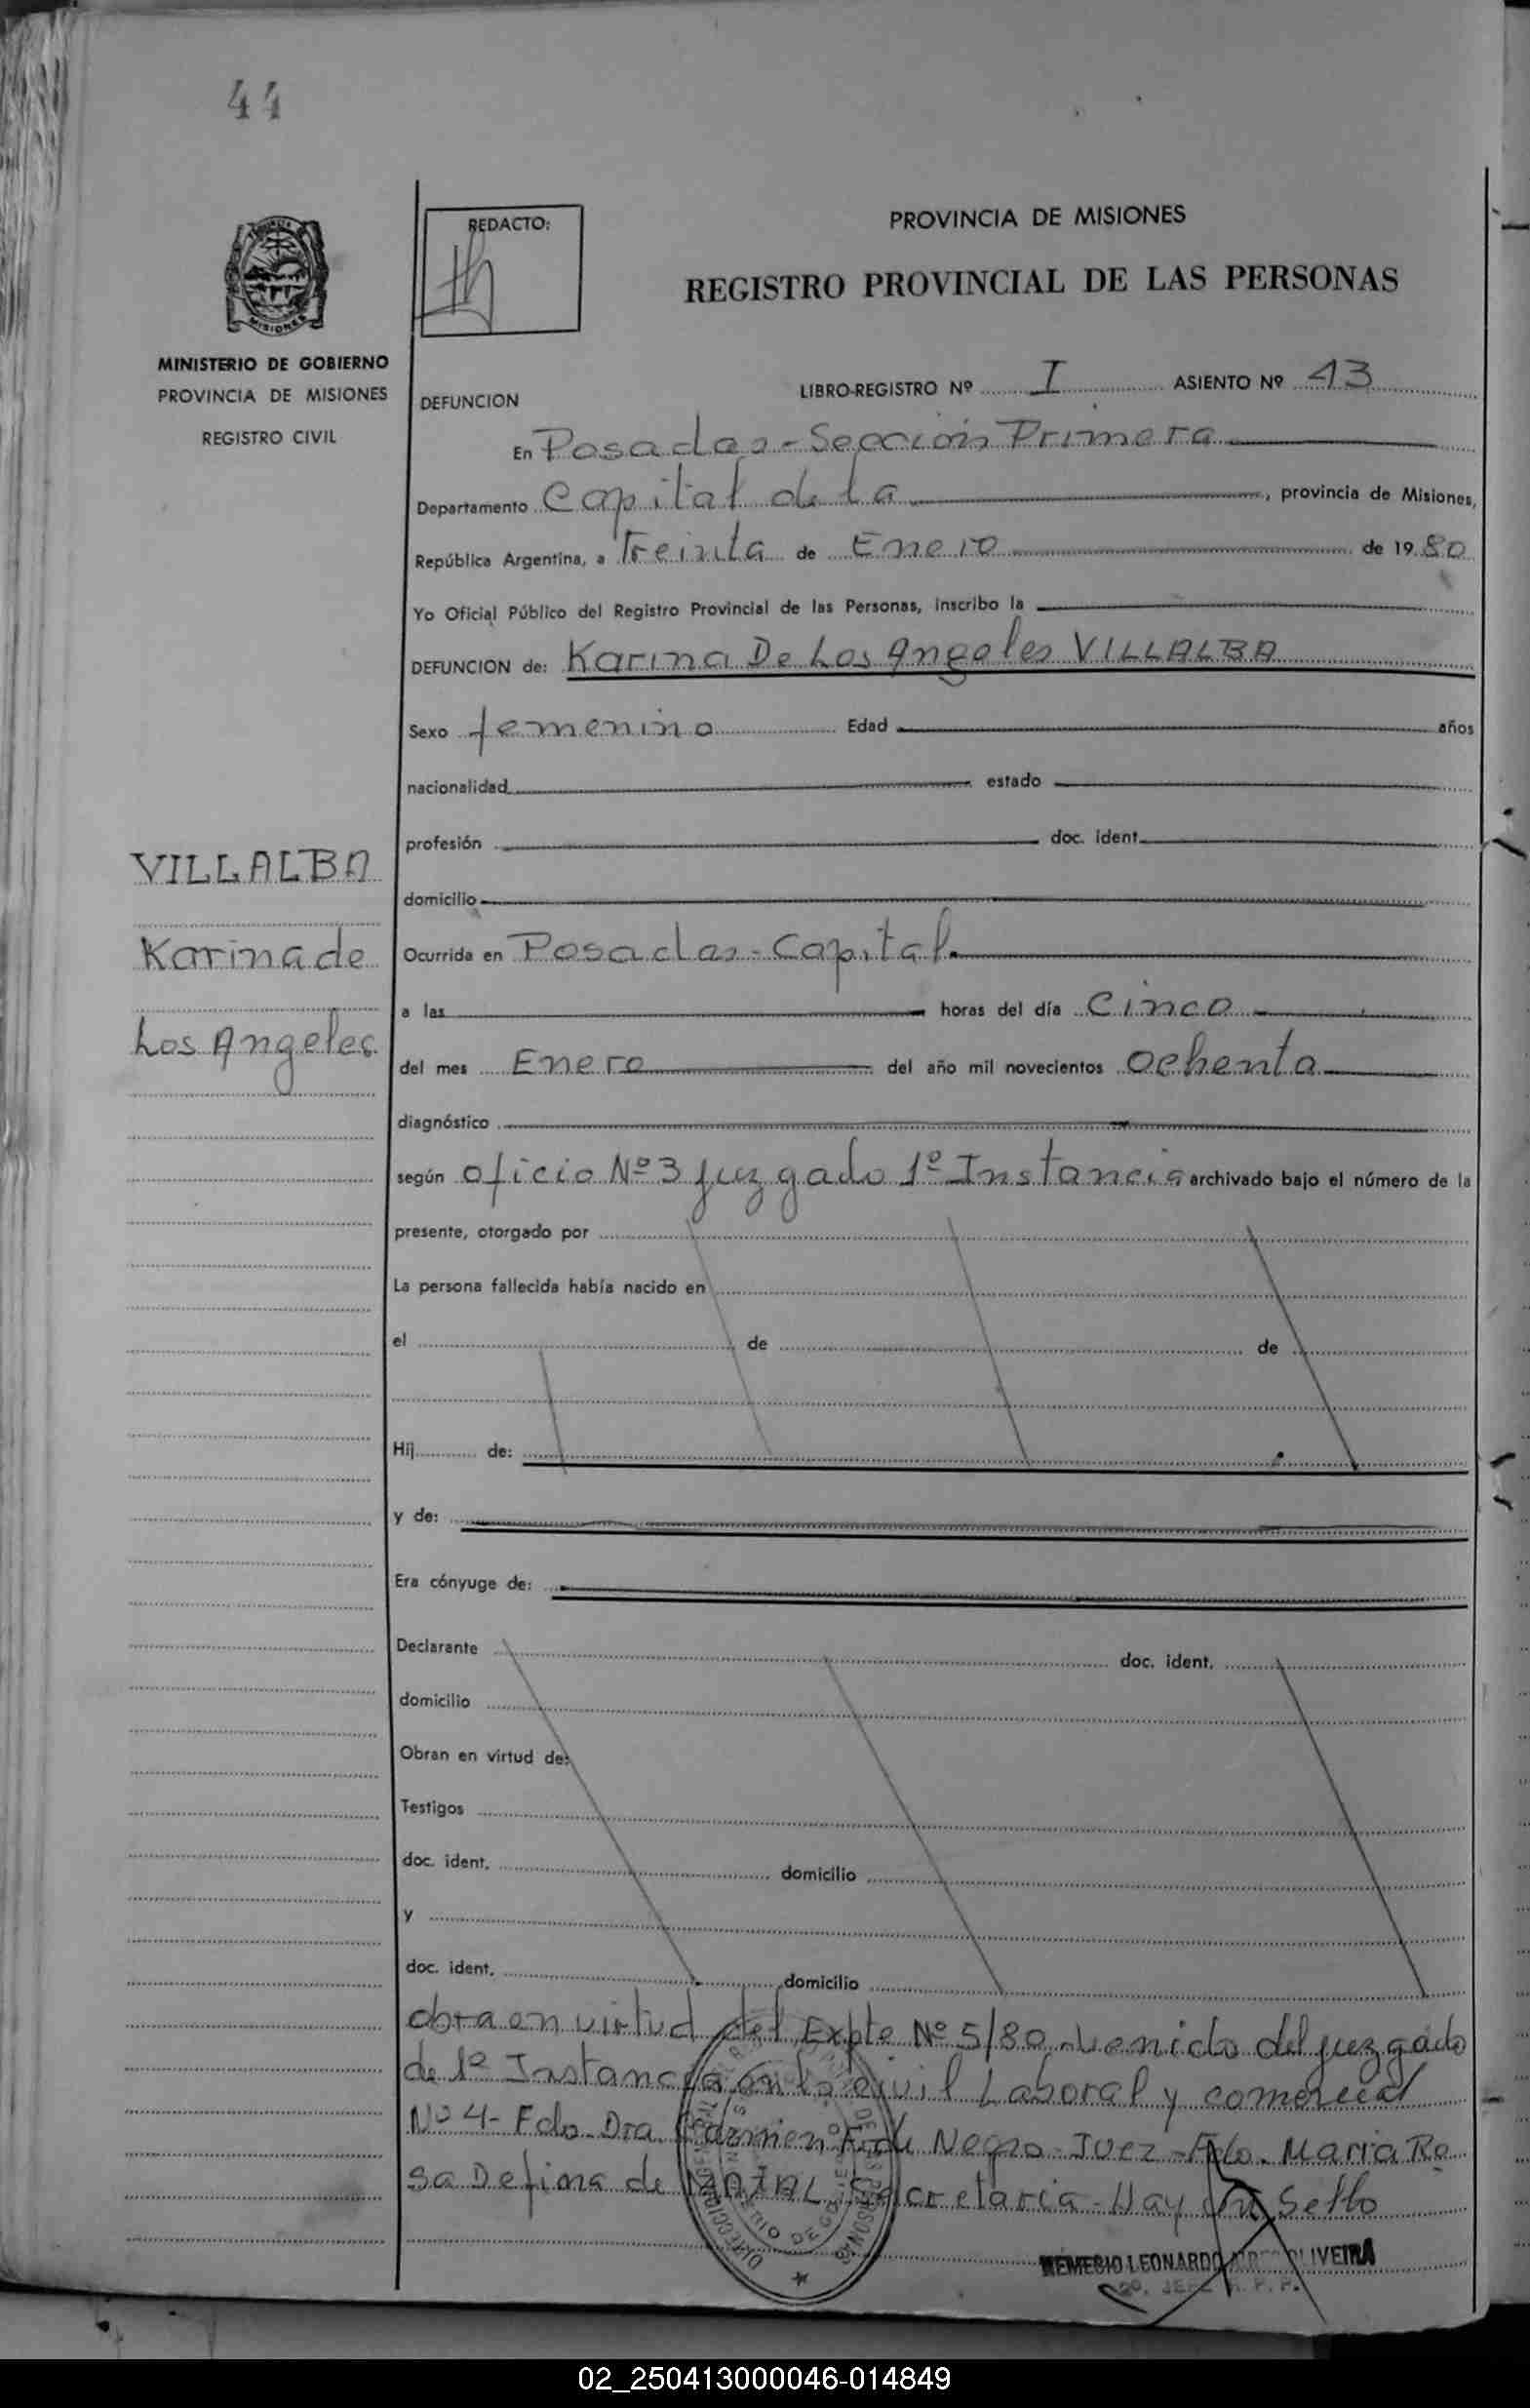 44
REDACTO:
PROVINCIA DE MISIONES
REGISTRO PROVINCIAL DE LAS PERSONAS
MISIONES
MINISTERIO DE GOBIERNO
PROVINCIA DE MISIONES
REGISTRO CIVIL
LIBRO-REGISTRO Nº I ASIENTO Nº 43
DEFUNCION
En Posadas - Sección Primera
Departamento Capital de la, provincia de Misiones,
República Argentina, a Treinta de Enero de 1980
Yo Oficial Público del Registro Provincial de las Personas, inscribo la
DEFUNCION de: Karina De Los Angeles VILLALBA
Sexo femenino Edad años
nacionalidad estado
profesión doc. ident.
VILLALBA
domicilio
Karina de
Ocurrida en Posadas - Capital.
a las horas del día Cinco
Los Angeles
del mes Enero del año mil novecientos Ochenta
diagnóstico
según oficio Nº 3 Juzgado 1º Instancia archivado bajo el número de la
presente, otorgado por
La persona fallecida había nacido en
el de de
Hij de:
y de:
Era cónyuge de:
Declarante doc. ident.
domicilio
Obran en virtud de:
Testigos
doc. ident. domicilio
y
doc. ident. domicilio
obra en virtud del Expte Nº 5/80 - venido del juzgado
de 1º Instancia en lo civil Laboral y comercial
Nº 4 - Fdo. Dra. Carmen de Negro - Juez - Fdo. Maria Ro
sa Defina de Secretaria - Hay un Sello
NEMESIO LEONARDO OLIVEIRA
02_250413000046-014849